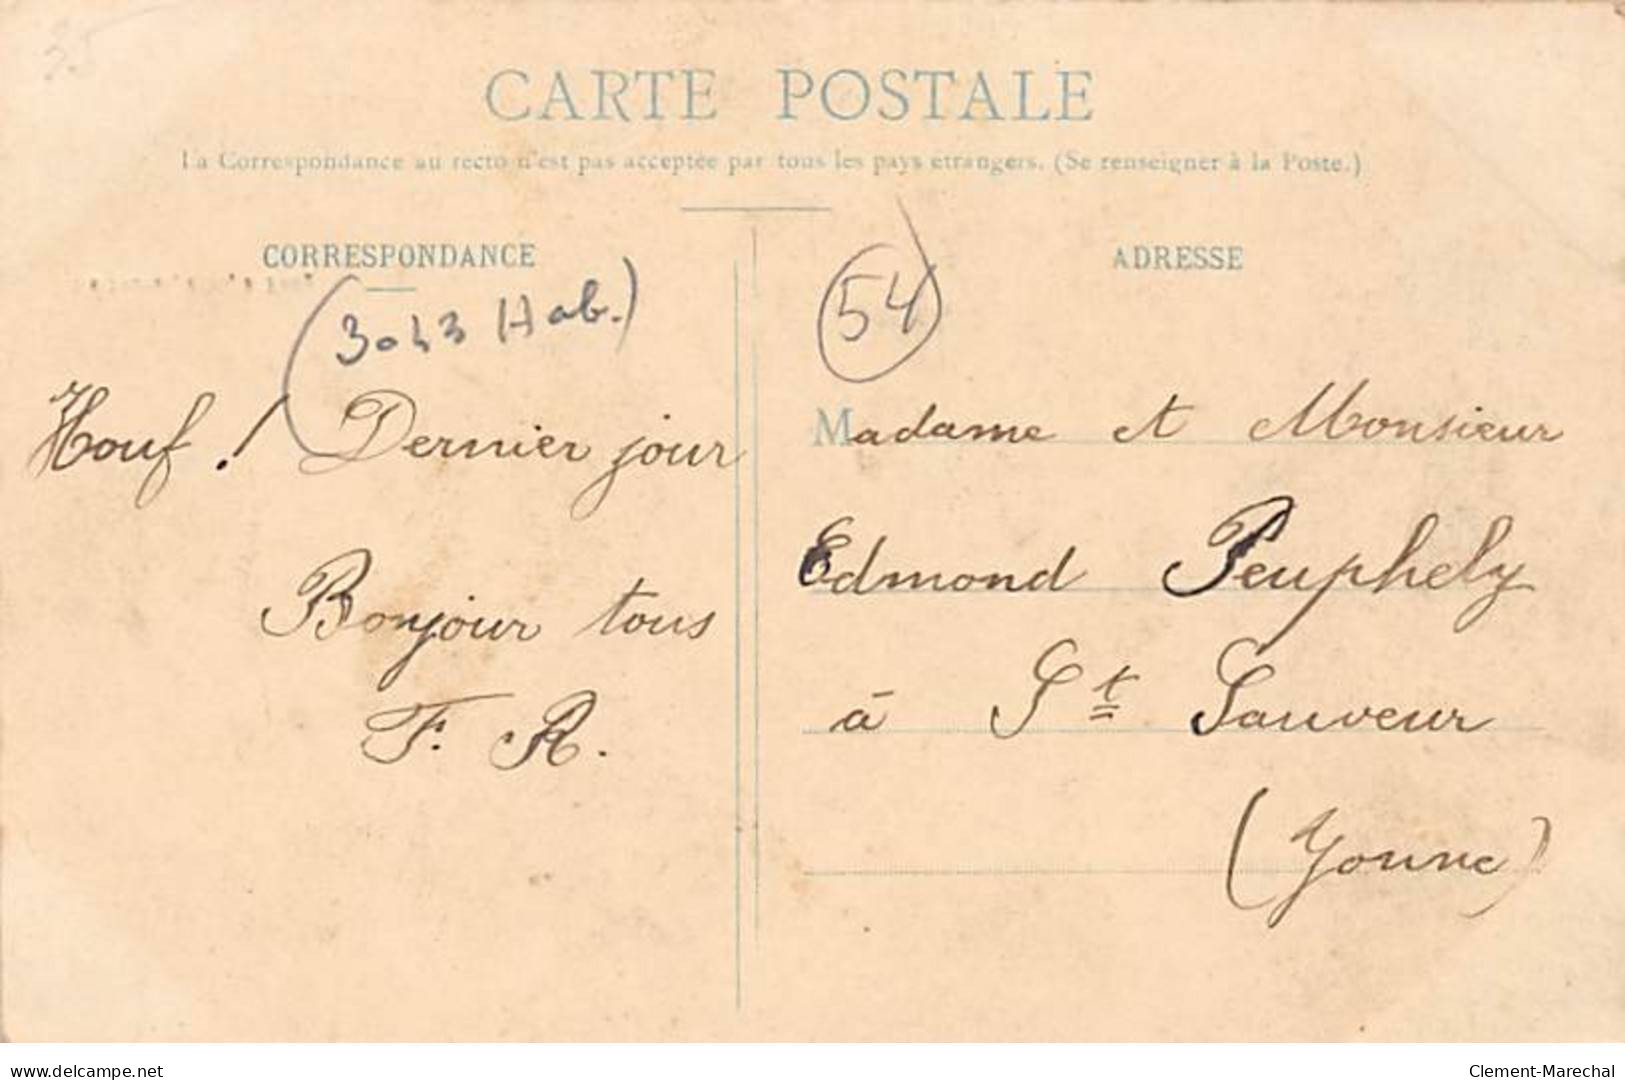 35
CARTE POSTALE
La Correspondance au recto n'est pas acceptée par tous les pays étrangers. (Se renseigner à la Poste.)
CORRESPONDANCE
(3043 Hab.)
Houf ! Dernier jour
Bonjour tous
F. R.
54
ADRESSE
Madame et Monsieur
Edmond Peuphely
à St Sauveur
(Yonne)
delcampe.net
Clement-Marechal